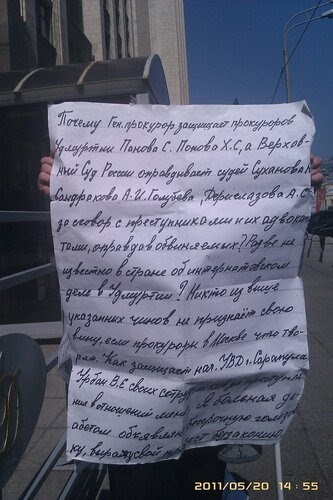 Почему Ген.прокурор защищает прокуроров
Удмуртии Панова С. Попова Х.С, а Верхов-
ный Суд России оправдывает судей Суханова
Сандракова А.И. Голубева,
за сговор с преступниками и их адвока-
тами, оправдав обвиняемых? Разве не
известно в стране об интернатовском
деле в Удмуртии? Никто из выше
указанных чинов не признаёт свою
вину, если прокуроры в Москве что тво-
рят. Как защищает нач. УВД г. Сарапула
Урбан В.Е своих
ния в отношении меня. Я больная диа-
бетом объявляю бессрочную голодов-
ку, выражу свой протест беззаконию.
2011/05/20 14:55